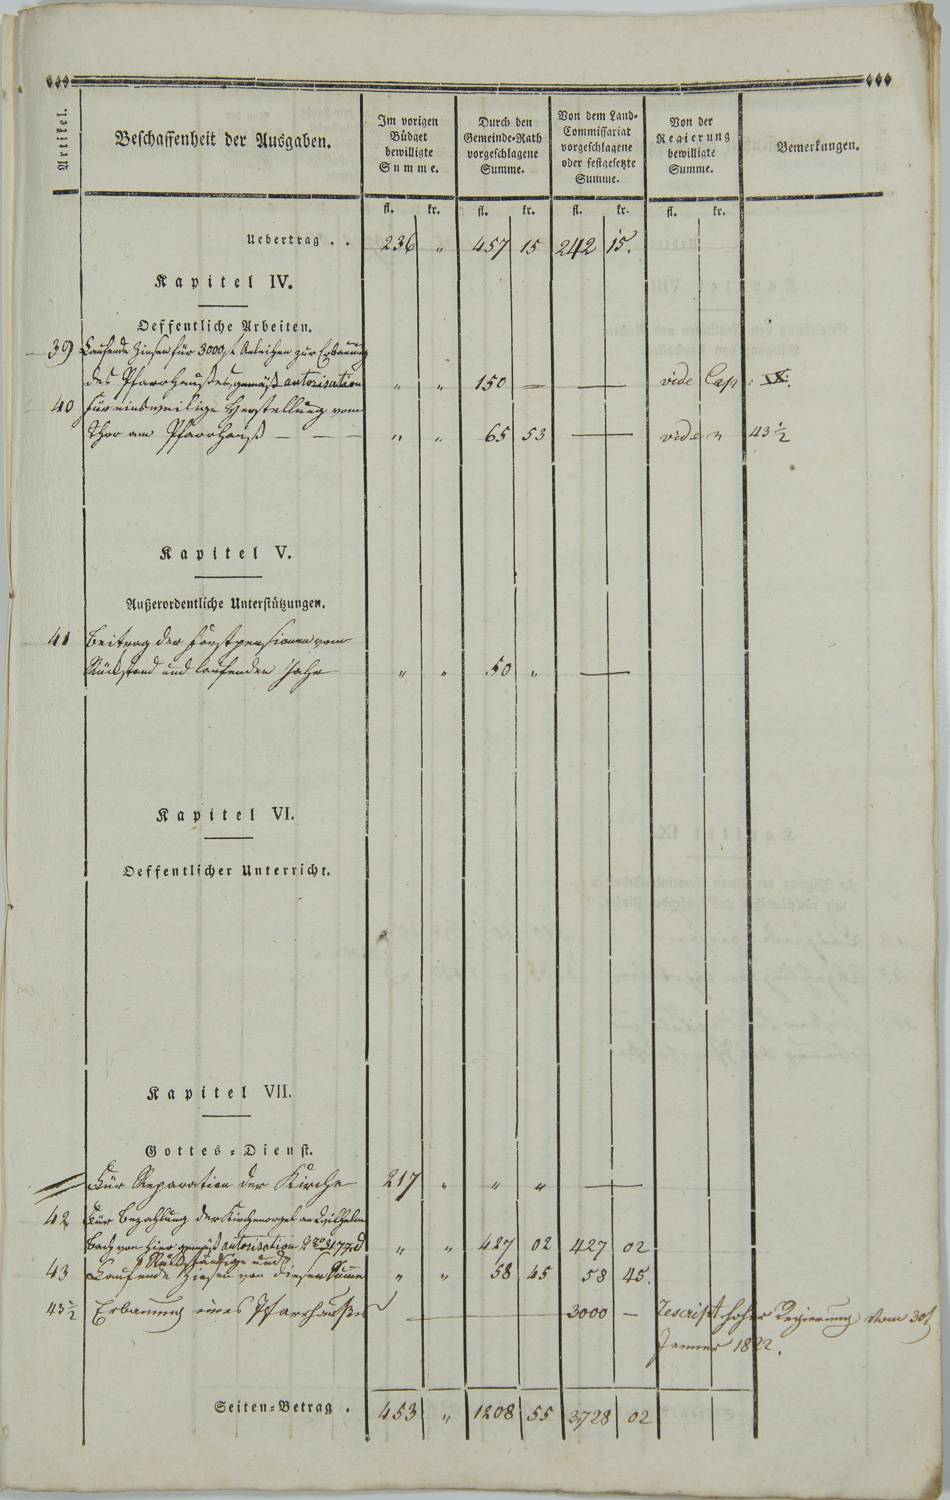 Artikel.
Beschaffenheit der Ausgaben.
Im vorigen Büdget bewilligte Summe.
Durch den Gemeinde-Rath vorgeschlagene Summe.
Von dem Land-Commissariat vorgeschlagene oder festgesetzte Summe.
Von der Regierung bewilligte Summe.
Bemerkungen.
fl. kr. fl. kr. fl. kr. fl. kr.
Uebertrag . . 236 „ 457 15 242 15.
Kapitel IV.
Oeffentliche Arbeiten.
39 Laufende Zinsen für 3000 fl Anleihen zur Erbauung
des Pfarrhaußes, gemäß autorisation „ „ 150 — — vide Cap: IX.
40 Für einsweilige Herstellung vom
Thor am Pfarrhauß — — — „ „ 65 53 — vide n 43 ½
Kapitel V.
Außerordentliche Unterstützungen.
41 Beitrag der Forstpensionen vom
Rückstand und laufenden Jahr „ „ 50 „ —
Kapitel VI.
Oeffentlicher Unterricht.
Kapitel VII.
Gottes-Dienst.
Für Reparation der Kirche 217 „ „ „ —
42 Für Bezahlung der Kirchenorgel an Wilhelm
Bach von hier gemäß autorisation „ „ 427 02 427 02
Rückständige und
43 Laufende Zinsen von dieser Summe „ „ 58 45 58 45.
43 ½ Erbauung eines Pfarrhaußes — — 3000 — Rescript hoher Regierung vom 30t
Jenner 1822.
Seiten-Betrag . 453 „ 1208 55 3728 02